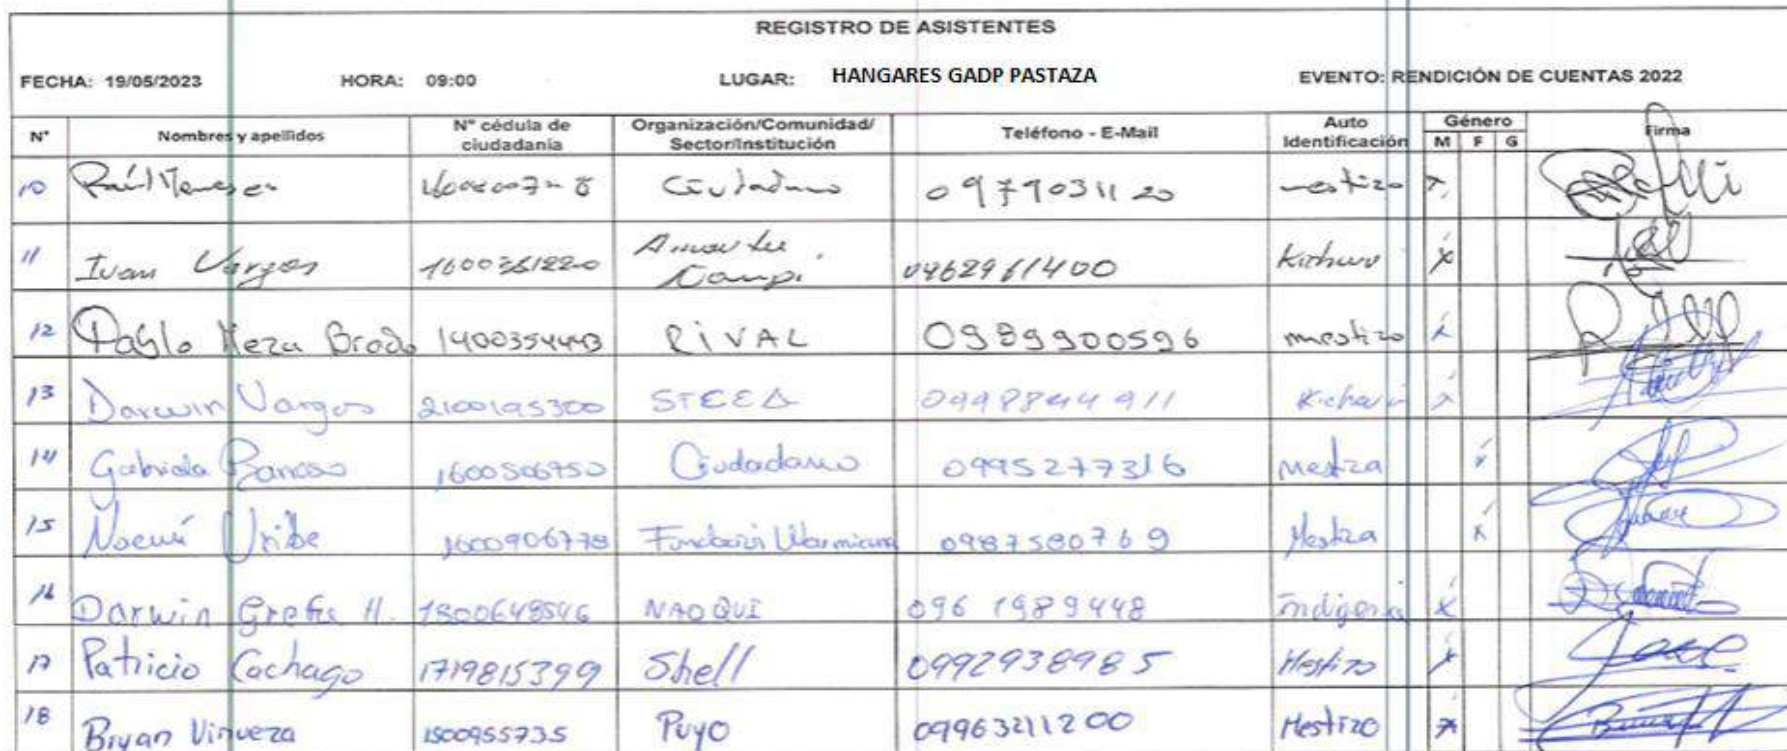 REGISTRO DE ASISTENTES
FECHA: 19/05/2023 HORA: 09:00 LUGAR: HANGARES GADP PASTAZA EVENTO: RENDICIÓN DE CUENTAS 2022
N° Nombres y apellidos N° cédula de ciudadanía Organización/Comunidad/Sector/Institución Teléfono - E-Mail Auto Identificación Género M F G Firma
10 Raúl Ciudadano 0979031120 mestizo x
11 Ivan Vargas 1600351220 0962961400 x
12 Pablo Meza 1400354443 RIVAL 0989900596 mestizo x
13 Darwin Vargas 2100195300 STEEA 0998844911 x
14 Gabriela 1600506750 Ciudadano 0995277316 Mestiza x
15 Noemí Uribe 1600906778 Fundación 0987580769 Mestiza x
16 Darwin Grefa H. 1500648546 NAOQUI 0961989448 indigena x
17 Patricio Cachago 1719815399 Shell 0992938985 Mestizo x
18 Bryan Vinueza 1500955735 Puyo 0996321200 Mestizo x